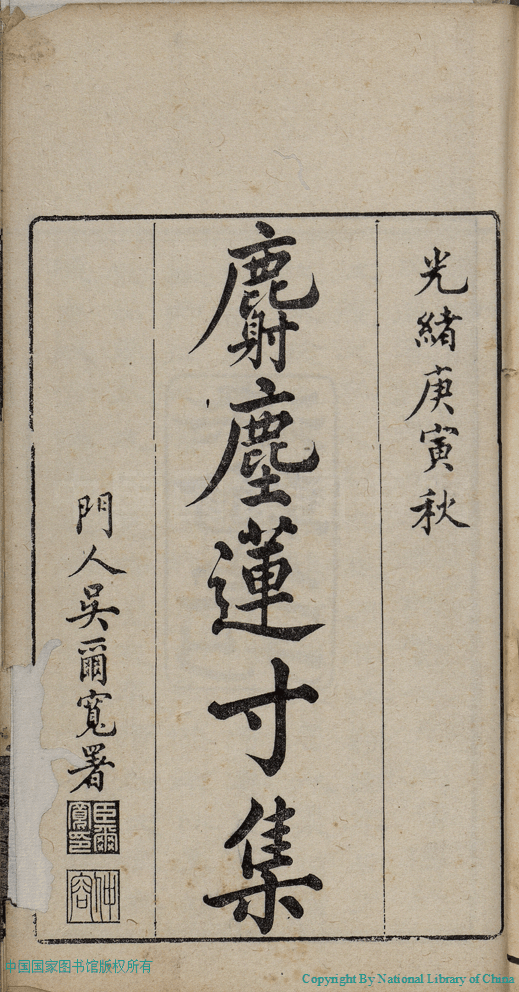 光緒庚寅秋
麝塵蓮寸集
門人吳爾寬署
臣爾寬印
仲容
中国国家图书馆版权所有
Copyright By National Library of China